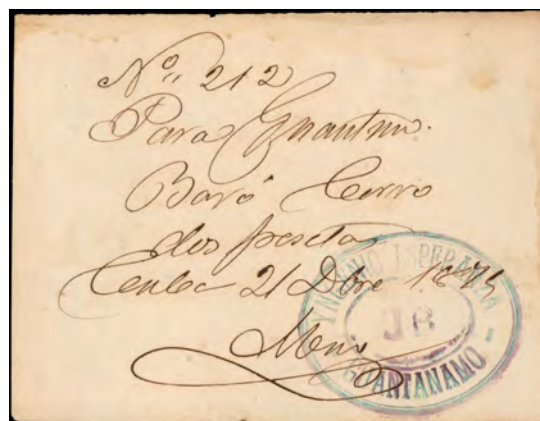 Nº 212
Para Guantmo.
Baró Cerro
dos pesetas
Cuba 21 Dbre 187
YNGENIO ESPERANZA
JB
GUANTANAMO